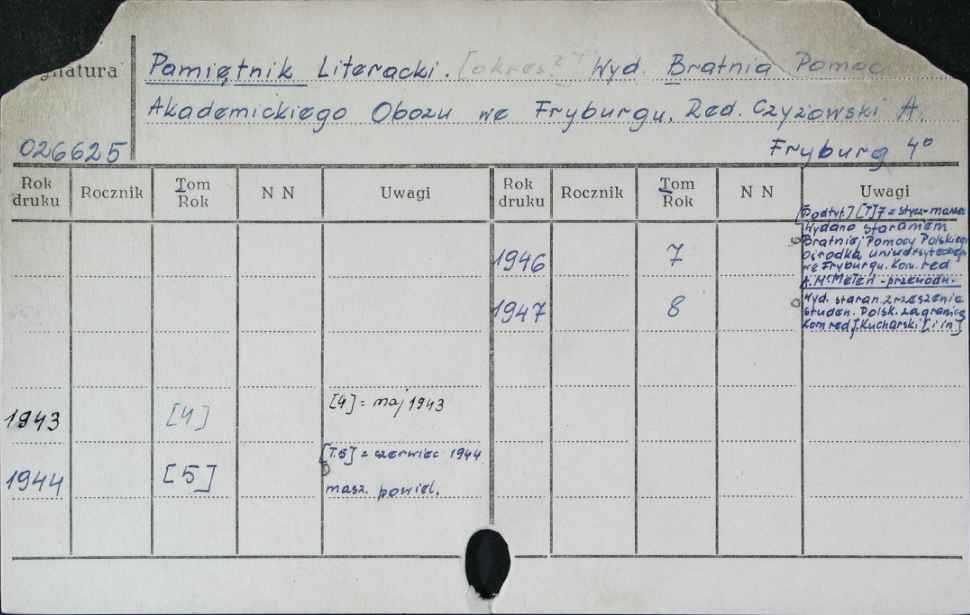 Pamiętnik Literacki. [okres?] Wyd. Bratnia Pomoc
gnatura
Akademickiego Obozu we Fryburgu. Red. Czyżowski A.
026625
Fryburg 4°
Rok druku Rocznik Tom Rok N N Uwagi Rok druku Rocznik Tom Rok N N Uwagi
1943 [4] [4] = maj 1943
1944 [5] [T.5] = czerwiec 1944
masz. powiel.
1946 7
[Podtyt.] [T] 7 = stycz-marzec
Wydano staraniem
Bratniej Pomocy Polskiego
Ośrodka uniwersyteckiego
we Fryburgu. Kom. red
A. Mc
1947 8
Wyd. staran. Zrzeszenia
studen. Polsk. zagranicą
Kom red J. Kucharski [i in]